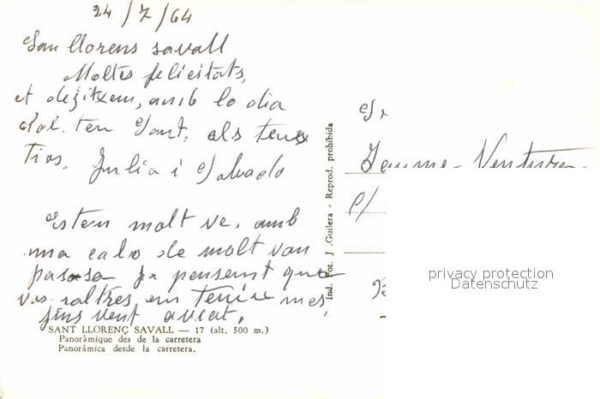 24/7/64
San llorens savall
Moltes felicitats,
et dezitxem, amb lo dia
del teu Sant, als teus
Tios, Julia i Salvado
Estem molt ve, amb
una calo de molt van
pasasa ja pensem que
vosaltres en tenire mes,
fins vent aviat,
SANT LLORENÇ SAVALL — 17 (alt. 500 m.)
Panoràmique des de la carretera
Panorámica desde la carretera.
Ind. Fot. J. Guilera - Reprod. prohibida
Sr
Jaume Ventura
C/
privacy protection
Datenschutz